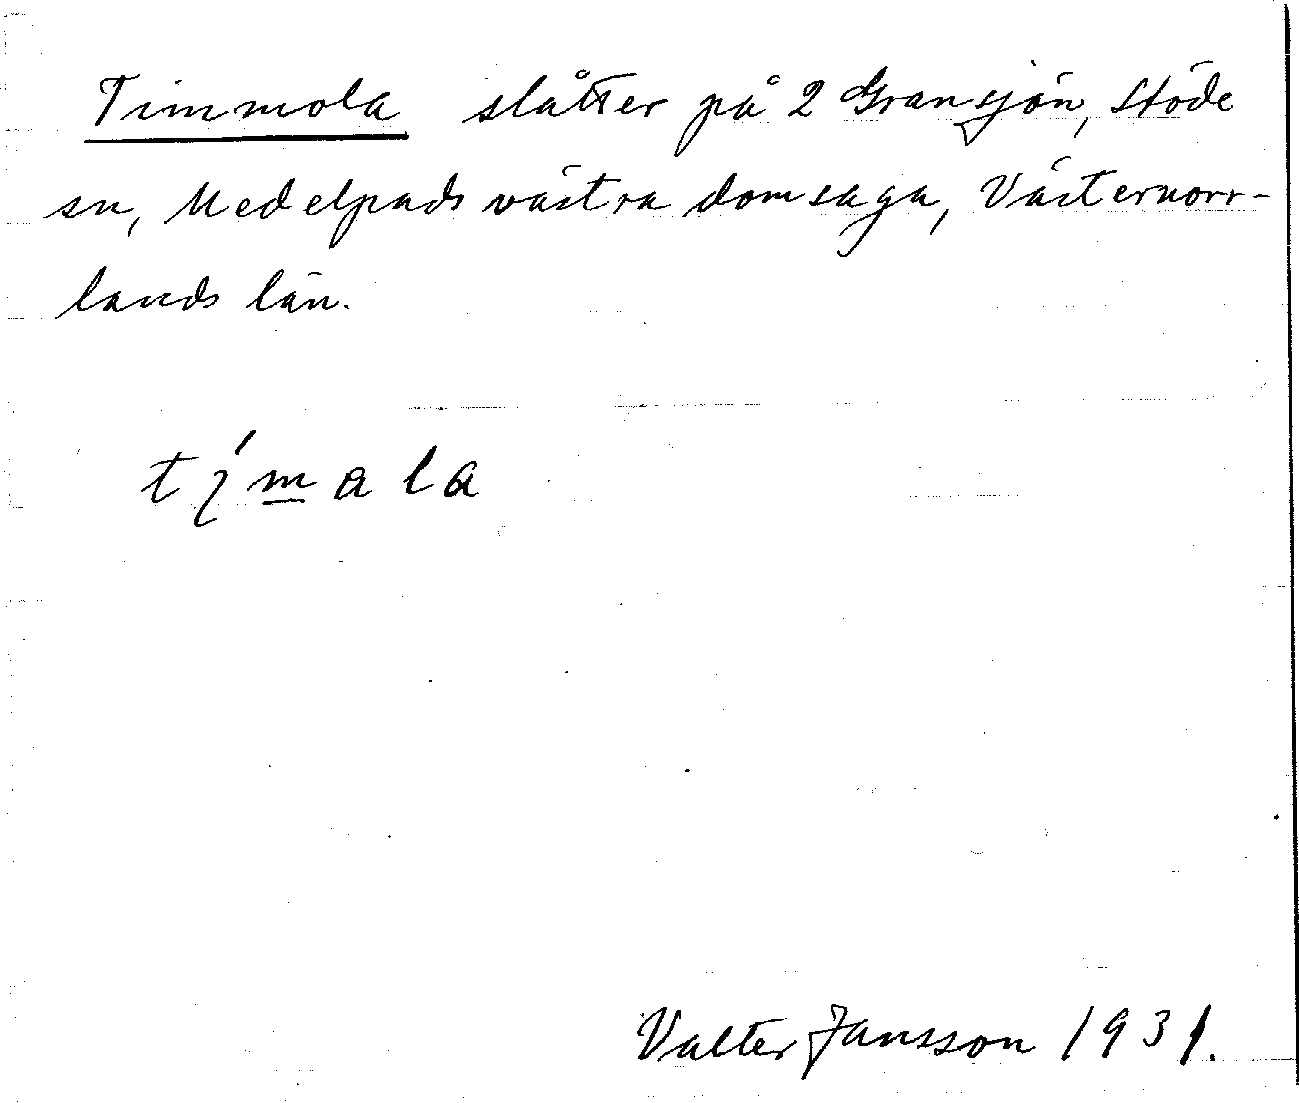 Timmola slåtter på 2 Gransjön, Stöde
sn, Medelpads västra domsaga, Västernorr-
lands län.
tímala
Valter Jansson 1931.